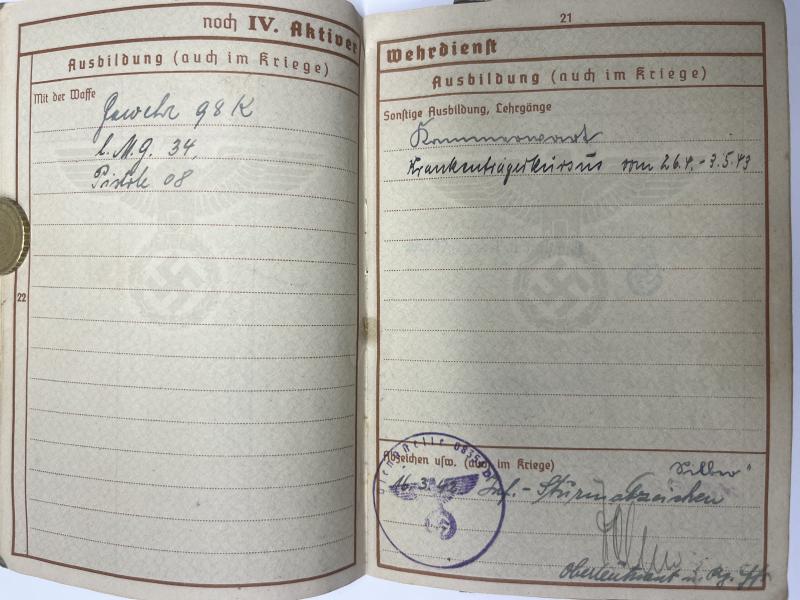 noch IV. Aktiver
Ausbildung (auch im Kriege)
Mit der Waffe
Gewehr 98 K
l. M.G. 34,
Pistole 08
22
21
Wehrdienst
Ausbildung (auch im Kriege)
Sonstige Ausbildung, Lehrgänge
Krankenträgerkursus vom 26.4.-3.5.43
Dienststelle
Abzeichen usw. (auch im Kriege)
"Silber"
16.3.42 Inf.-Sturmabzeichen
Oberleutnant u.